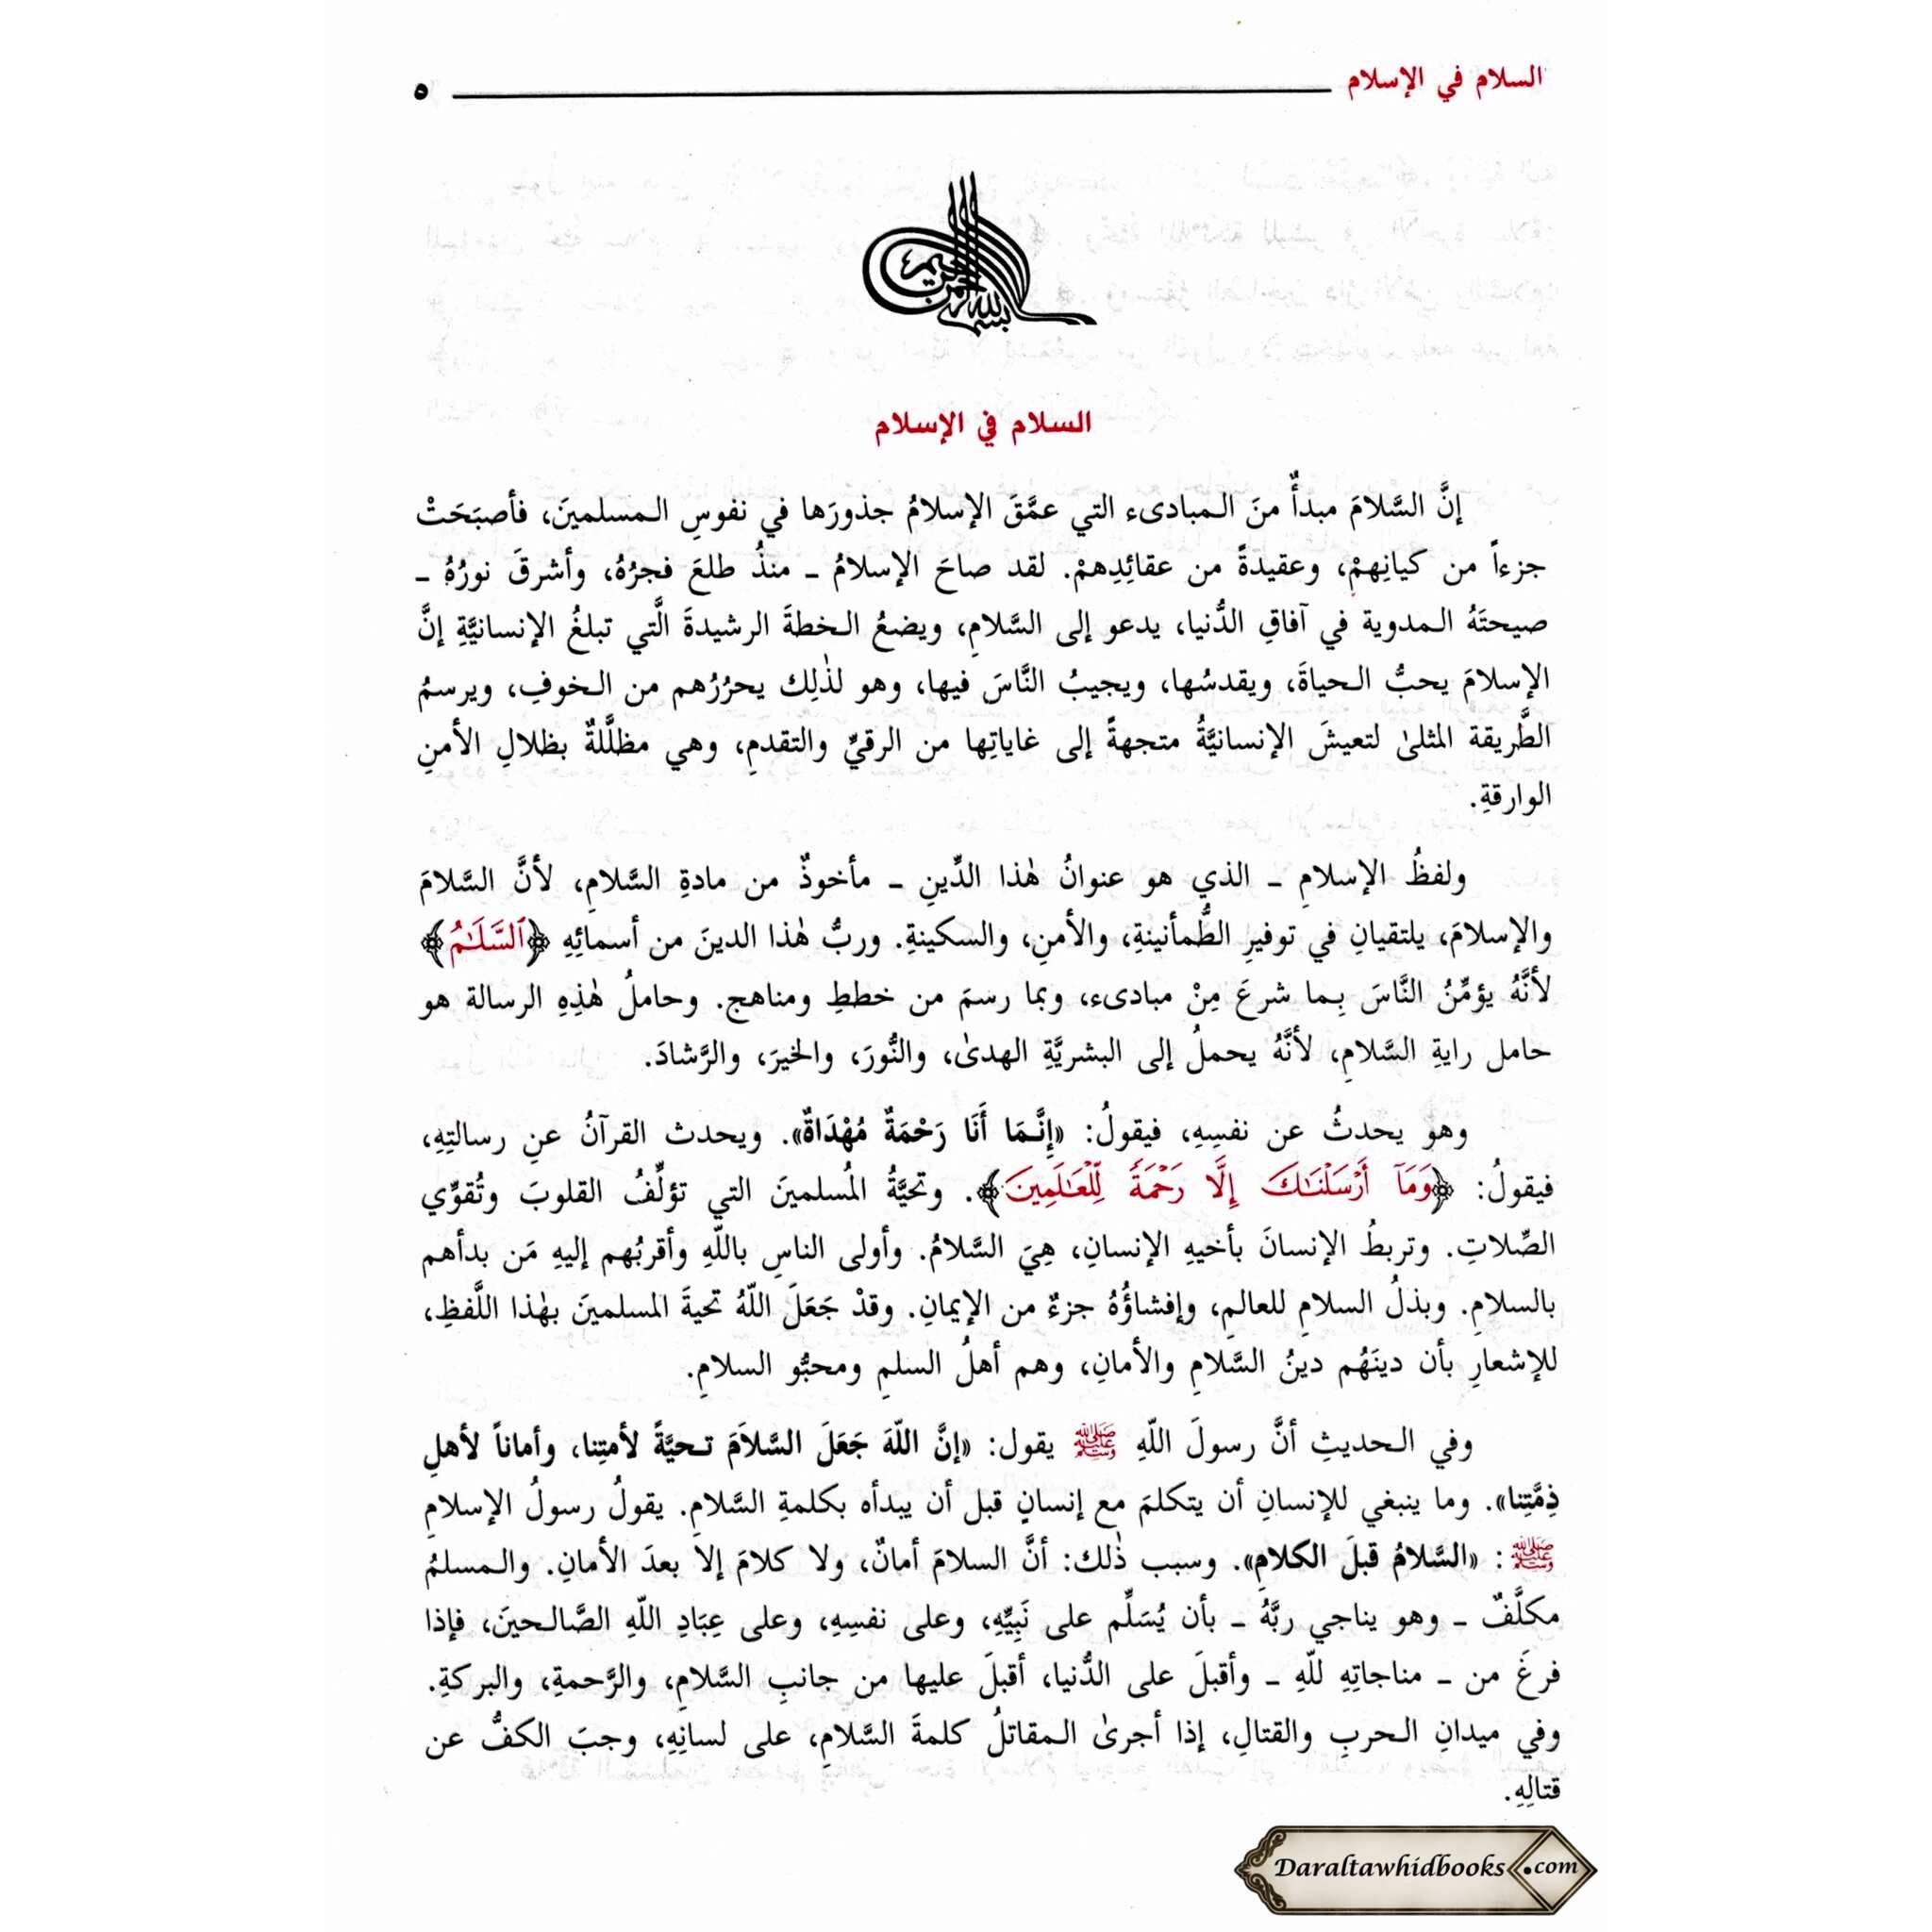 السلام في الإسلام ٥
بسم الله الرحمن الرحيم
السلام في الإسلام
إنَّ السَّلامَ مبدأٌ منَ المبادىء التي عمَّقَ الإسلامُ جذورَها في نفوسِ المسلمينَ، فأصبَحَتْ
جزءاً من كيانِهمْ، وعقيدةً من عقائِدِهمْ. لقد صاحَ الإسلامُ ـ منذُ طلعَ فجرُهُ، وأشرقَ نورُهُ ـ
صيحتَهُ المدوية في آفاقِ الدُّنيا، يدعو إلى السَّلامِ، ويضعُ الخطةَ الرشيدةَ الَّتي تبلغُ الإنسانيَّةِ إنَّ
الإسلامَ يحبُّ الحياةَ، ويقدسُها، ويجيبُ النَّاسَ فيها، وهو لذٰلِك يحرُرُهم من الخوفِ، ويرسمُ
الطَّريقة المثلىٰ لتعيشَ الإنسانيَّةُ متجهةً إلى غاياتِها من الرقيِّ والتقدمِ، وهي مظلَّلةٌ بظلالِ الأمنِ
الوارقةِ.
ولفظُ الإسلامِ ـ الذي هو عنوانُ هٰذا الدِّينِ ـ مأخوذٌ من مادةِ السَّلامِ، لأنَّ السَّلامَ
والإسلامَ، يلتقيانِ في توفيرِ الطُّمأنينةِ، والأمنِ، والسكينةِ. وربُّ هٰذا الدينَ من أسمائِهِ ﴿ٱلسَّلَـٰمُ﴾
لأنَّهُ يؤمِّنُ النَّاسَ بِما شرعَ مِنْ مبادىء، وبما رسمَ من خططِ ومناهج. وحاملُ هٰذِهِ الرسالة هو
حامل رايةِ السَّلامِ، لأنَّهُ يحملُ إلى البشريَّةِ الهدىٰ، والنُّورَ، والخيرَ، والرَّشادَ.
وهو يحدثُ عن نفسِهِ، فيقولُ: «إِنَّمَا أَنَا رَحْمَةٌ مُهْدَاةٌ». ويحدث القرآنُ عنِ رسالتِهِ،
فيقولُ: ﴿وَمَآ أَرۡسَلۡنَـٰكَ إِلَّا رَحۡمَةٗ لِّلۡعَـٰلَمِينَ﴾. وتحيَّةُ المُسلمينَ التي تؤلِّفُ القلوبَ وتُقوِّي
الصِّلاتِ. وتربطُ الإنسانَ بأخيهِ الإنسانِ، هِيَ السَّلامُ. وأولى الناسِ باللّهِ وأقربُهم إليهِ مَن بدأهم
بالسلامِ. وبذلُ السلامِ للعالمِ، وإفشاؤُهُ جزءٌ من الإيمانِ. وقدْ جَعَلَ اللّهُ تحيةَ المسلمينَ بهٰذا اللَّفظِ،
للإشعارِ بأن دينَهُم دينُ السَّلامِ والأمانِ، وهم أهلُ السلمِ ومحبُّو السلامِ.
وفي الحديثِ أنَّ رسولَ اللّهِ ﷺ يقول: «إنَّ اللّهَ جَعَلَ السَّلاَمَ تحيَّةً لأمتِنا، وأماناً لأهلِ
ذِمَّتِنا». وما ينبغي للإنسانِ أن يتكلمَ مع إنسانٍ قبل أن يبدأه بكلمةِ السَّلامِ. يقولُ رسولُ الإسلامِ
ﷺ: «السَّلامُ قبلَ الكلامِ». وسبب ذٰلك: أنَّ السلامَ أمانٌ، ولا كلامَ إلاَّ بعدَ الأمانِ. والمسلمُ
مكلَّفٌ ـ وهو يناجي ربَّهُ ـ بأن يُسَلِّم على نَبِيِّهِ، وعلى نفسِهِ، وعلى عِبَادِ اللّهِ الصَّالحينَ، فإذا
فرغَ من ـ مناجاتِهِ للّهِ ـ وأقبلَ على الدُّنيا، أقبلَ عليها من جانبِ السَّلامِ، والرَّحمةِ، والبركةِ.
وفي ميدانِ الحربِ والقتالِ، إذا أجرىٰ المقاتلُ كلمةَ السَّلامِ، على لسانِهِ، وجبَ الكفُّ عن
قتالِهِ.
Daraltawhidbooks.com